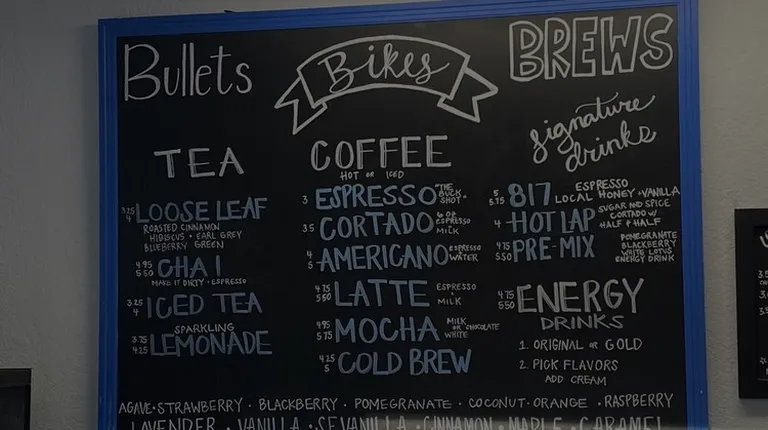 Bullets Bikes BREWS
TEA
3.25 LOOSE LEAF
4
ROASTED CINNAMON
HIBISCUS • EARL GREY
BLUEBERRY GREEN
4.95 CHAI
5.50
MAKE IT DIRTY + ESPRESSO
3.25 ICED TEA
4
SPARKLING
3.75 LEMONADE
4.25
COFFEE
HOT OR ICED
3 ESPRESSO "THE BUCK SHOT"
3.5 CORTADO 6 OZ ESPRESSO MILK
4 AMERICANO ESPRESSO
5 WATER
4.75 LATTE ESPRESSO
5.50 + MILK
4.95 MOCHA MILK OR CHOCOLATE
5.75 WHITE
4.25 COLD BREW
5
signature
drinks
5 817 ESPRESSO
5.75 LOCAL HONEY + VANILLA
4 HOT LAP SUGAR AND SPICE
CORTADO W/
HALF & HALF
4.75 PRE-MIX POMEGRANATE
5.50 BLACKBERRY
WHITE LOTUS
ENERGY DRINK
4.75 ENERGY
5.50
DRINKS
1. ORIGINAL OR GOLD
2. PICK FLAVORS
ADD CREAM
AGAVE • STRAWBERRY • BLACKBERRY • POMEGRANATE • COCONUT • ORANGE • RASPBERRY
LAVENDER • VANILLA • SF VANILLA • CINNAMON • MAPLE • CARAMEL